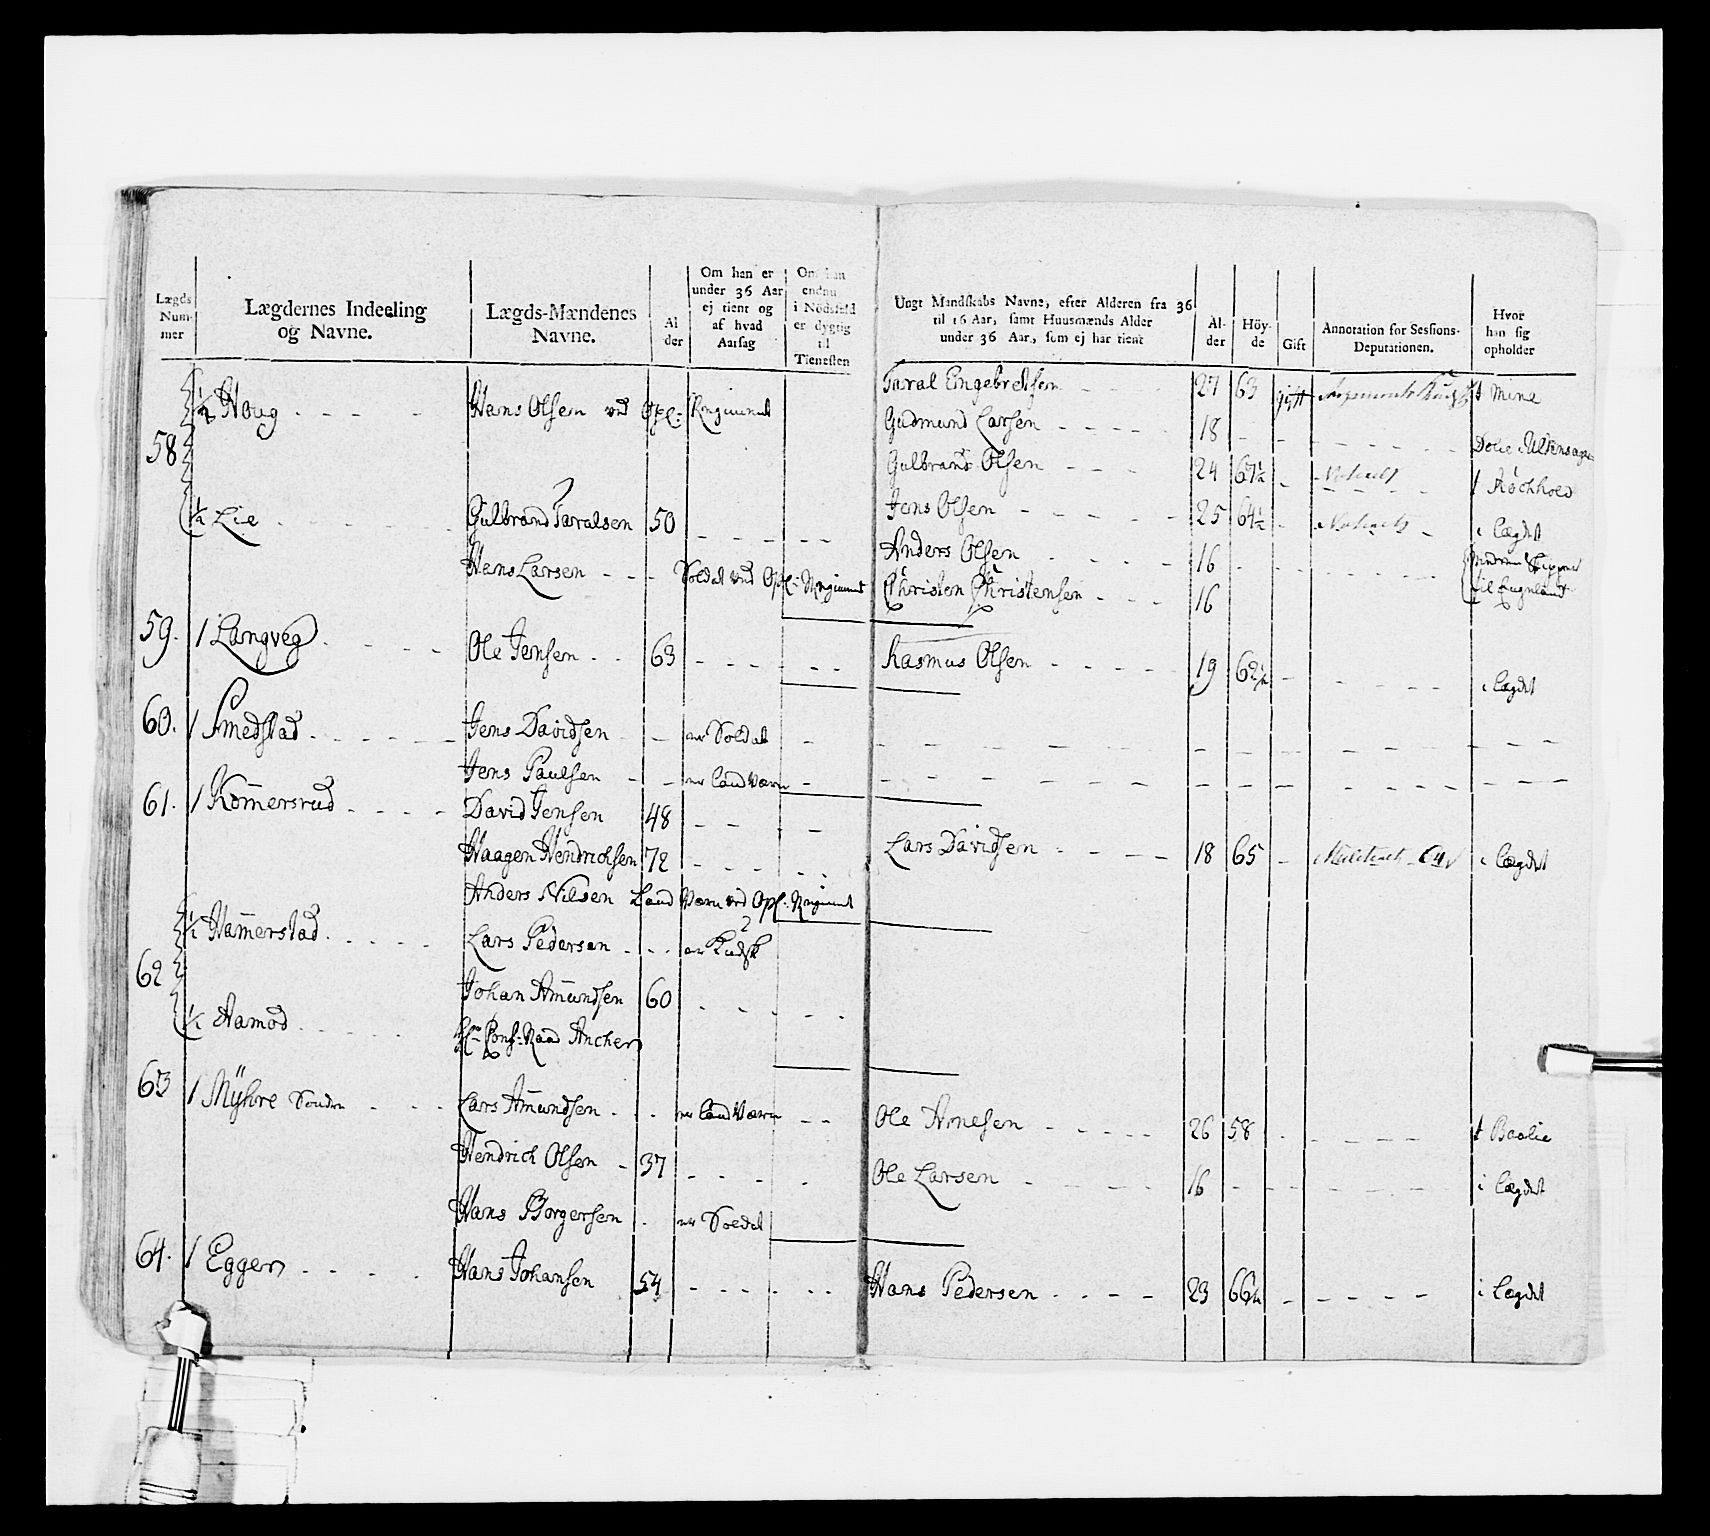 Lægds Num- mer
Lægdernes Indeeling og Navne.
Lægds-Mændenes Navne.
Al der
Om han er under 36 Aar ej tient og af hvad Aarsag
Om han endnu i Nödsfald er dygtig til Tienesten
Ungt Mandskabs Navne, efter Alderen fra 36 til 16 Aar, samt Huusmænds Alder under 36 Aar, som ej har tient
Al- der
Höy- de
Gift
Annotation for Sessions- Deputationen.
Hvor han sig opholder
58 ½ Houg Hans Olsen ved Opl: Regiment Taral Engebretsen 27 63 gift Mine
Gudmund Larsen 18
Gulbrand Olsen 24 67½
½ Lie Gulbrand Taralsen 50 Jens Olsen 25 64½ i Lægdet
Anders Olsen 16
Hans Larsen Soldat ved Opl: Regiment Christen Christensen 16
59. 1 Langveg Ole Jensen 63 Rasmus Olsen 19 62½ i Lægdet
60. 1 Smedstad Jens Davidsen er Soldat
Jens Paulsen er Land Værn
61. 1 Kom̄ersrud David Jensen 48
Haagen Hendrichsen 72 Lars Davidsen 18 65 i Lægdet
Anders Nilsen Land Værn ved Opl: Regiment
62 ½ Ham̄erstad Lars Pedersen er Kudsk
Johan Am̄undsen 60
½ Aamod Hr Conf: Raad Ancher
63 1 Mÿhre Søndre Lars Am̄undsen er Land Værn Ole Arnesen 26 58 Baalie
Hendrich Olsen 37 Ole Larsen 16 i Lægdet
Hans Borgersen er Soldat
64. 1 Eggen Hans Johansen 54 Hans Pedersen 23 66¼ i Lægdet